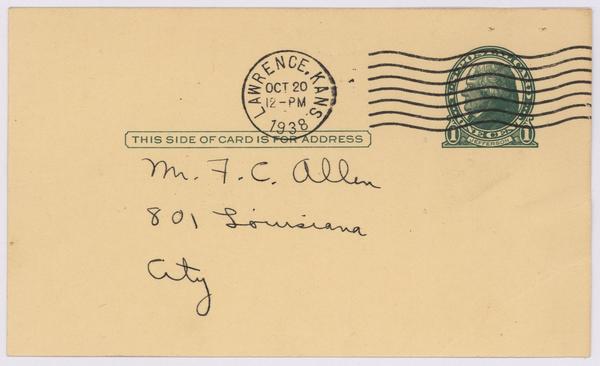 LAWRENCE, KANS.
OCT 20
12-PM
1938
THIS SIDE OF CARD IS FOR ADDRESS
1 JEFFERSON 1
Mr. F. C. Allen
801 Louisiana
City